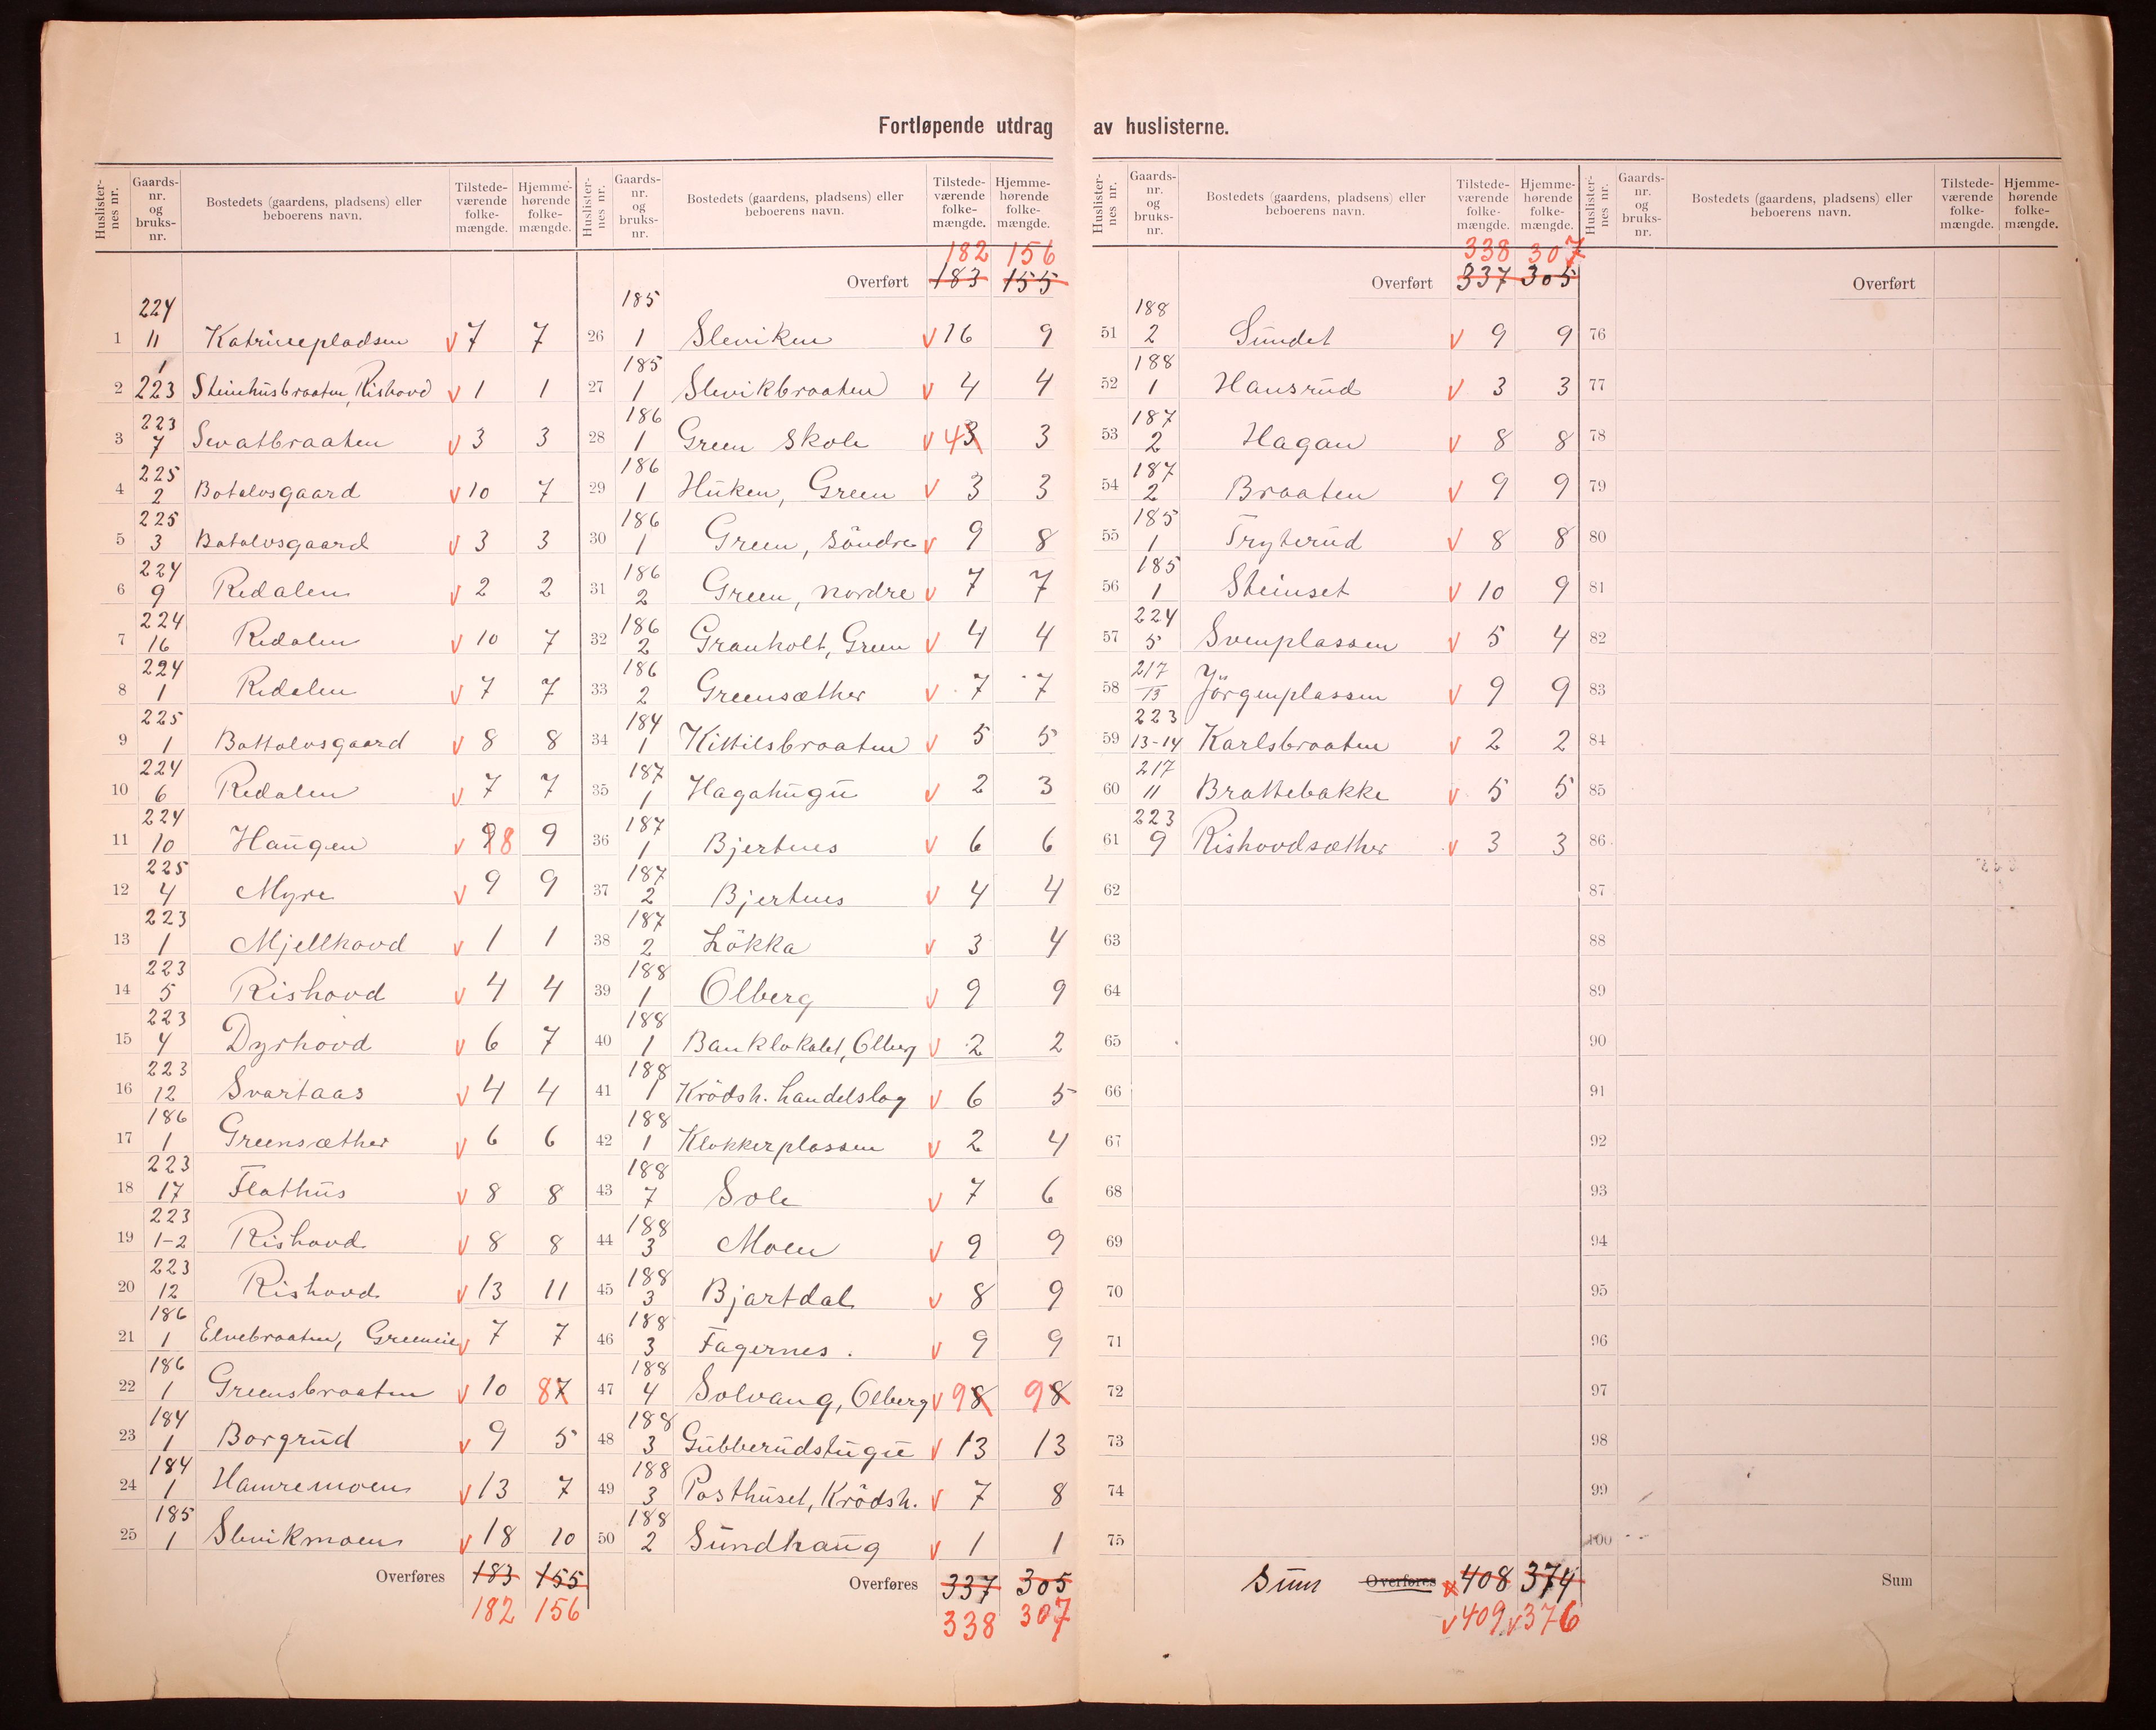 Fortløpende utdrag av huslisterne.
Huslisternes nr. | Gaards-nr. og bruks-nr. | Bostedets (gaardens, pladsens) eller beboerens navn. | Tilstede-værende folke-mængde. | Hjemme-hørende folke-mængde.
1 | 224 11 | Katrinepladsen | v 7 | 7
2 | 1 223 | Steinhusbraaten, Rishovd | v 1 | 1
3 | 223 7 | Sevatbraaten | v 3 | 3
4 | 225 2 | Botolvsgaard | v 10 | 7
5 | 225 3 | Botolvsgaard | v 3 | 3
6 | 224 9 | Redalen | v 2 | 2
7 | 224 16 | Redalen | v 10 | 7
8 | 224 1 | Redalen | v 7 | 7
9 | 225 1 | Bottolvsgaard | v 8 | 8
10 | 224 6 | Redalen | v 7 | 7
11 | 224 10 | Haugen | v 9 8 | 9
12 | 225 4 | Myre | v 9 | 9
13 | 223 1 | Mjellhovd | v 1 | 1
14 | 223 5 | Rishovd | v 4 | 4
15 | 223 4 | Dyrhovd | v 6 | 7
16 | 223 12 | Svartaas | v 4 | 4
17 | 186 1 | Greensæther | v 6 | 6
18 | 223 17 | Flathus | v 8 | 8
19 | 223 1-2 | Rishovd | v 8 | 8
20 | 223 12 | Rishovd | v 13 | 11
21 | 186 1 | Elvebraaten, Greeneie | v 7 | 7
22 | 186 1 | Greensbraaten | v 10 | 8 7
23 | 184 1 | Borgrud | v 9 | 5
24 | 184 1 | Hamremoen | v 13 | 7
25 | 185 1 | Slevikmoen | v 18 | 10
Overføres | 183 | 155
182 | 156
Huslisternes nr. | Gaards-nr. og bruks-nr. | Bostedets (gaardens, pladsens) eller beboerens navn. | Tilstede-værende folke-mængde. | Hjemme-hørende folke-mængde.
182 | 156
Overført | 183 | 155
26 | 185 1 | Sleviken | v 16 | 9
27 | 185 1 | Slevikbraaten | v 4 | 4
28 | 186 1 | Green skole | v 4 3 | 3
29 | 186 1 | Huken, Green | v 3 | 3
30 | 186 1 | Green, söndre | v 9 | 8
31 | 186 2 | Green, nordre | v 7 | 7
32 | 186 2 | Granholt, Green | v 4 | 4
33 | 186 2 | Greensæther | v 7 | 7
34 | 184 1 | Kittilsbraaten | v 5 | 5
35 | 187 1 | Hagahugu | v 2 | 3
36 | 187 1 | Bjertnes | v 6 | 6
37 | 187 2 | Bjertnes | v 4 | 4
38 | 187 2 | Lökka | v 3 | 4
39 | 188 1 | Olberg | v 9 | 9
40 | 188 1 | Banklokalet, Olberg | v 2 | 2
41 | 188 1 | Krödsh. handelslag | v 6 | 5
42 | 188 1 | Klokkerplassen | v 2 | 4
43 | 188 7 | Sole | v 7 | 6
44 | 188 3 | Moen | v 9 | 9
45 | 188 3 | Bjartdal | v 8 | 9
46 | 188 3 | Fagernes. | v 9 | 9
47 | 188 4 | Solvang, Olberg | v 9 8 | 9 8
48 | 188 3 | Gubberudstugu | v 13 | 13
49 | 188 3 | Posthuset, Krödsh. | v 7 | 8
50 | 188 2 | Sundhaug | v 1 | 1
Overføres | 337 | 305
338 | 307
Huslisternes nr. | Gaards-nr. og bruks-nr. | Bostedets (gaardens, pladsens) eller beboerens navn. | Tilstede-værende folke-mængde. | Hjemme-hørende folke-mængde.
338 | 307
Overført | 337 | 305
51 | 188 2 | Sundet | v 9 | 9
52 | 188 1 | Hansrud | v 3 | 3
53 | 187 2 | Hagan | v 8 | 8
54 | 187 2 | Braaten | v 9 | 9
55 | 185 1 | Tryterud | v 8 | 8
56 | 185 1 | Steinset | v 10 | 9
57 | 224 5 | Svenplassen | v 5 | 4
58 | 217 13 | Jörgenplassen | v 9 | 9
59 | 223 13-14 | Karlsbraaten | v 2 | 2
60 | 217 11 | Brattebakke | v 5 | 5
61 | 223 9 | Rishovdsæther | v 3 | 3
62
63
64
65
66
67
68
69
70
71
72
73
74
75
Sum Overføres | 408 | 374
v 409 | v 376
Huslisternes nr. | Gaards-nr. og bruks-nr. | Bostedets (gaardens, pladsens) eller beboerens navn. | Tilstede-værende folke-mængde. | Hjemme-hørende folke-mængde.
Overført
76
77
78
79
80
81
82
83
84
85
86
87
88
89
90
91
92
93
94
95
96
97
98
99
100
Sum